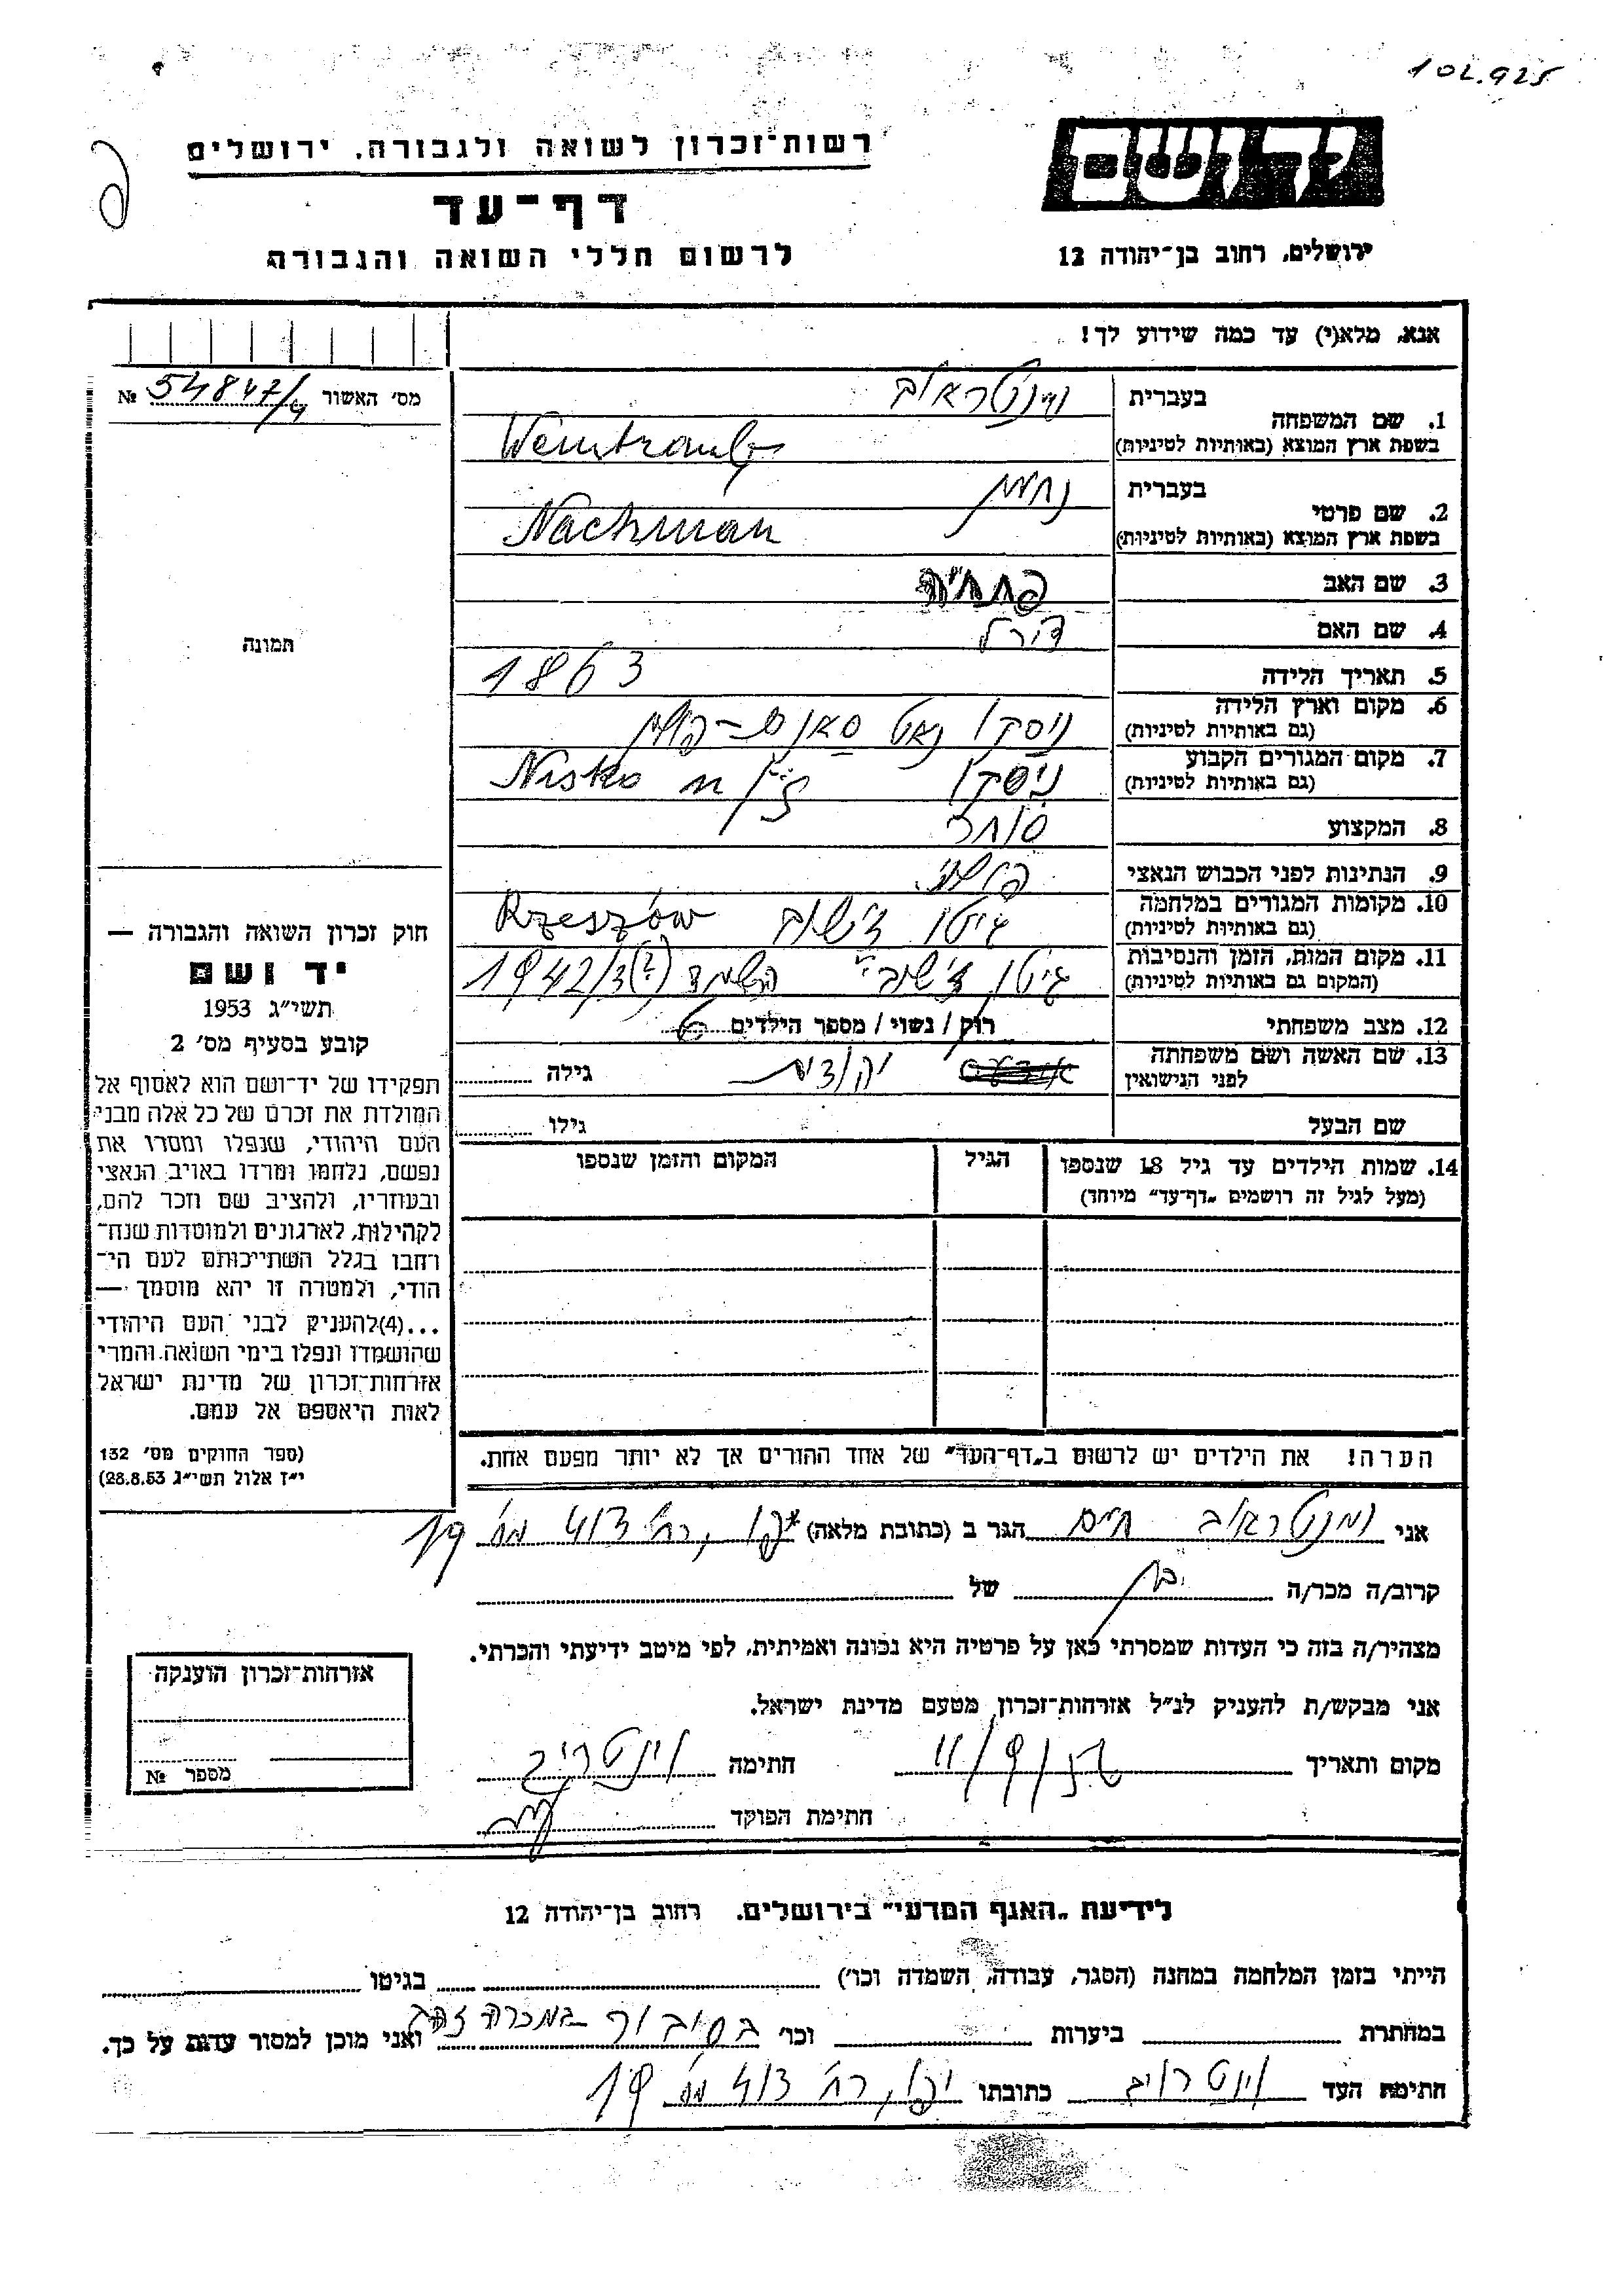 102.925
רשות־זכרון לשואה ולגבורה, ירושלים
ידושם
דף־עד
לרשום חללי השואה והגבורה
ירושלים, רחוב בן־יהודה 12
אנא, מלא(י) עד כמה שידוע לך!
מס׳ האשור № 54847/4
1. שם המשפחה
בעברית
בשפת ארץ המוצא (באותיות לטיניות) Weintraub
2. שם פרטי
בעברית נחמן
בשפת ארץ המוצא (באותיות לטיניות) Nachman
3. שם האב
4. שם האם
תמונה
5. תאריך הלידה 1863
6. מקום וארץ הלידה ניסקו נאט סאנם־פולין
(גם באותיות לטיניות)
7. מקום המגורים הקבוע ניסקו Nisko n/
(גם באותיות לטיניות)
8. המקצוע סוחר
9. הנתינות לפני הכבוש הנאצי
10. מקומות המגורים במלחמה גיטו ז׳שוב Rzeszów
(גם באותיות לטיניות)
11. מקום המות, הזמן והנסיבות גיטו ז׳שוב 1942/3(?)
(המקום גם באותיות לטיניות)
12. מצב משפחתי רוק / נשוי / מספר הילדים
13. שם האשה ושם משפחתה יהודית גילה
לפני הנישואין
שם הבעל גילו
14. שמות הילדים עד גיל 18 שנספו הגיל המקום והזמן שנספו
(מעל לגיל זה רושמים „דף־עד״ מיוחד)
חוק זכרון השואה והגבורה —
יד ושם
תשי״ג 1953
קובע בסעיף מס׳ 2
תפקידו של יד־ושם הוא לאסוף אל
המולדת את זכרם של כל אלה מבני
העם היהודי, שנפלו ומסרו את
נפשם, נלחמו ומרדו באויב הנאצי
ובעוזריו, ולהציב שם וזכר להם,
לקהילות, לארגונים ולמוסדות שנח־
רחבו בגלל השתייכותם לעם הי־
הודי, ולמטרה זו יהא מוסמך —
...(4)להעניק לבני העם היהודי
שהושמדו ונפלו בימי השואה והמרי
אזרחות־זכרון של מדינת ישראל
לאות היאספם אל עמם.
(ספר החוקים מס׳ 132
י״ז אלול תשי״ג 28.8.53)
הערה! את הילדים יש לרשום ב„דף־העד״ של אחד ההורים אך לא יותר מפעם אחת.
אני חיים הגר ב (כתובת מלאה) 19
קרוב/ה מכר/ה בן של
מצהיר/ה בזה כי העדות שמסרתי כאן על פרטיה היא נכונה ואמיתית, לפי מיטב ידיעתי והכרתי.
אני מבקש/ת להעניק לנ״ל אזרחות־זכרון מטעם מדינת ישראל.
מקום ותאריך חתימה
חתימת הפוקד
אזרחות־זכרון הוענקה
מספר №
לידיעת „האגף המדעי״ בירושלים, רחוב בן־יהודה 12
הייתי בזמן המלחמה במחנה (הסגר, עבודה, השמדה וכו׳) בגיטו
במחתרת ביערות וכו׳ ואני מוכן למסור עדות על כך.
חתימת העד כתובתו 19